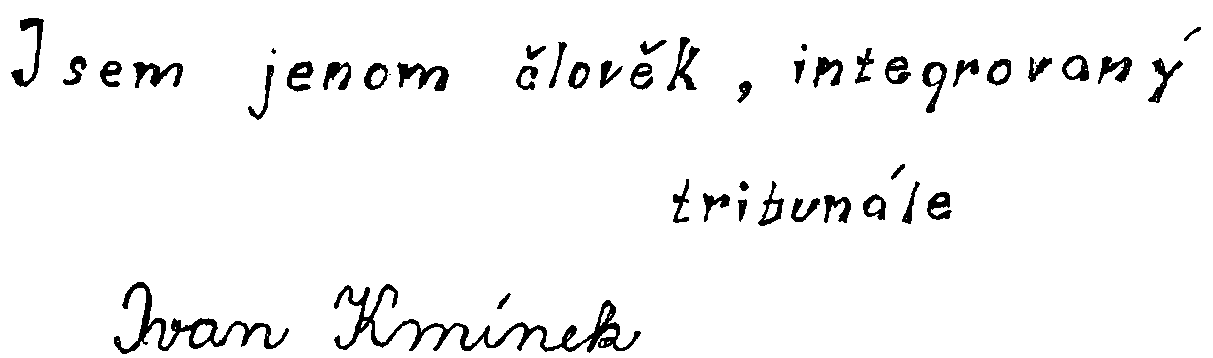 Jsem jenom člověk, integrovaný
tribunále
Ivan Kmínek